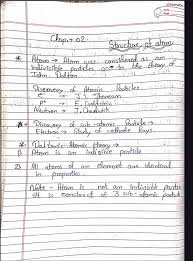 Chap. - 02
Structure of atom
* Atom → Atom was considered as an
indivisible particles acc to the theory of
John Dalton.
Discovery of Atomic Particles
e⁻ → J.J. Thomson
P⁺ → E. Goldstein
Neutron → J. Chadwick
* Discovery of sub-atomic Particle →
Electron → Study of cathode Rays.
* Dalton's Atomic theory →
1) Atom is an indivisible particle
2) All atoms of an element are identical
in properties.
Note - Atom is not an indivisible particle
It is consist of 3 sub-atomic particle